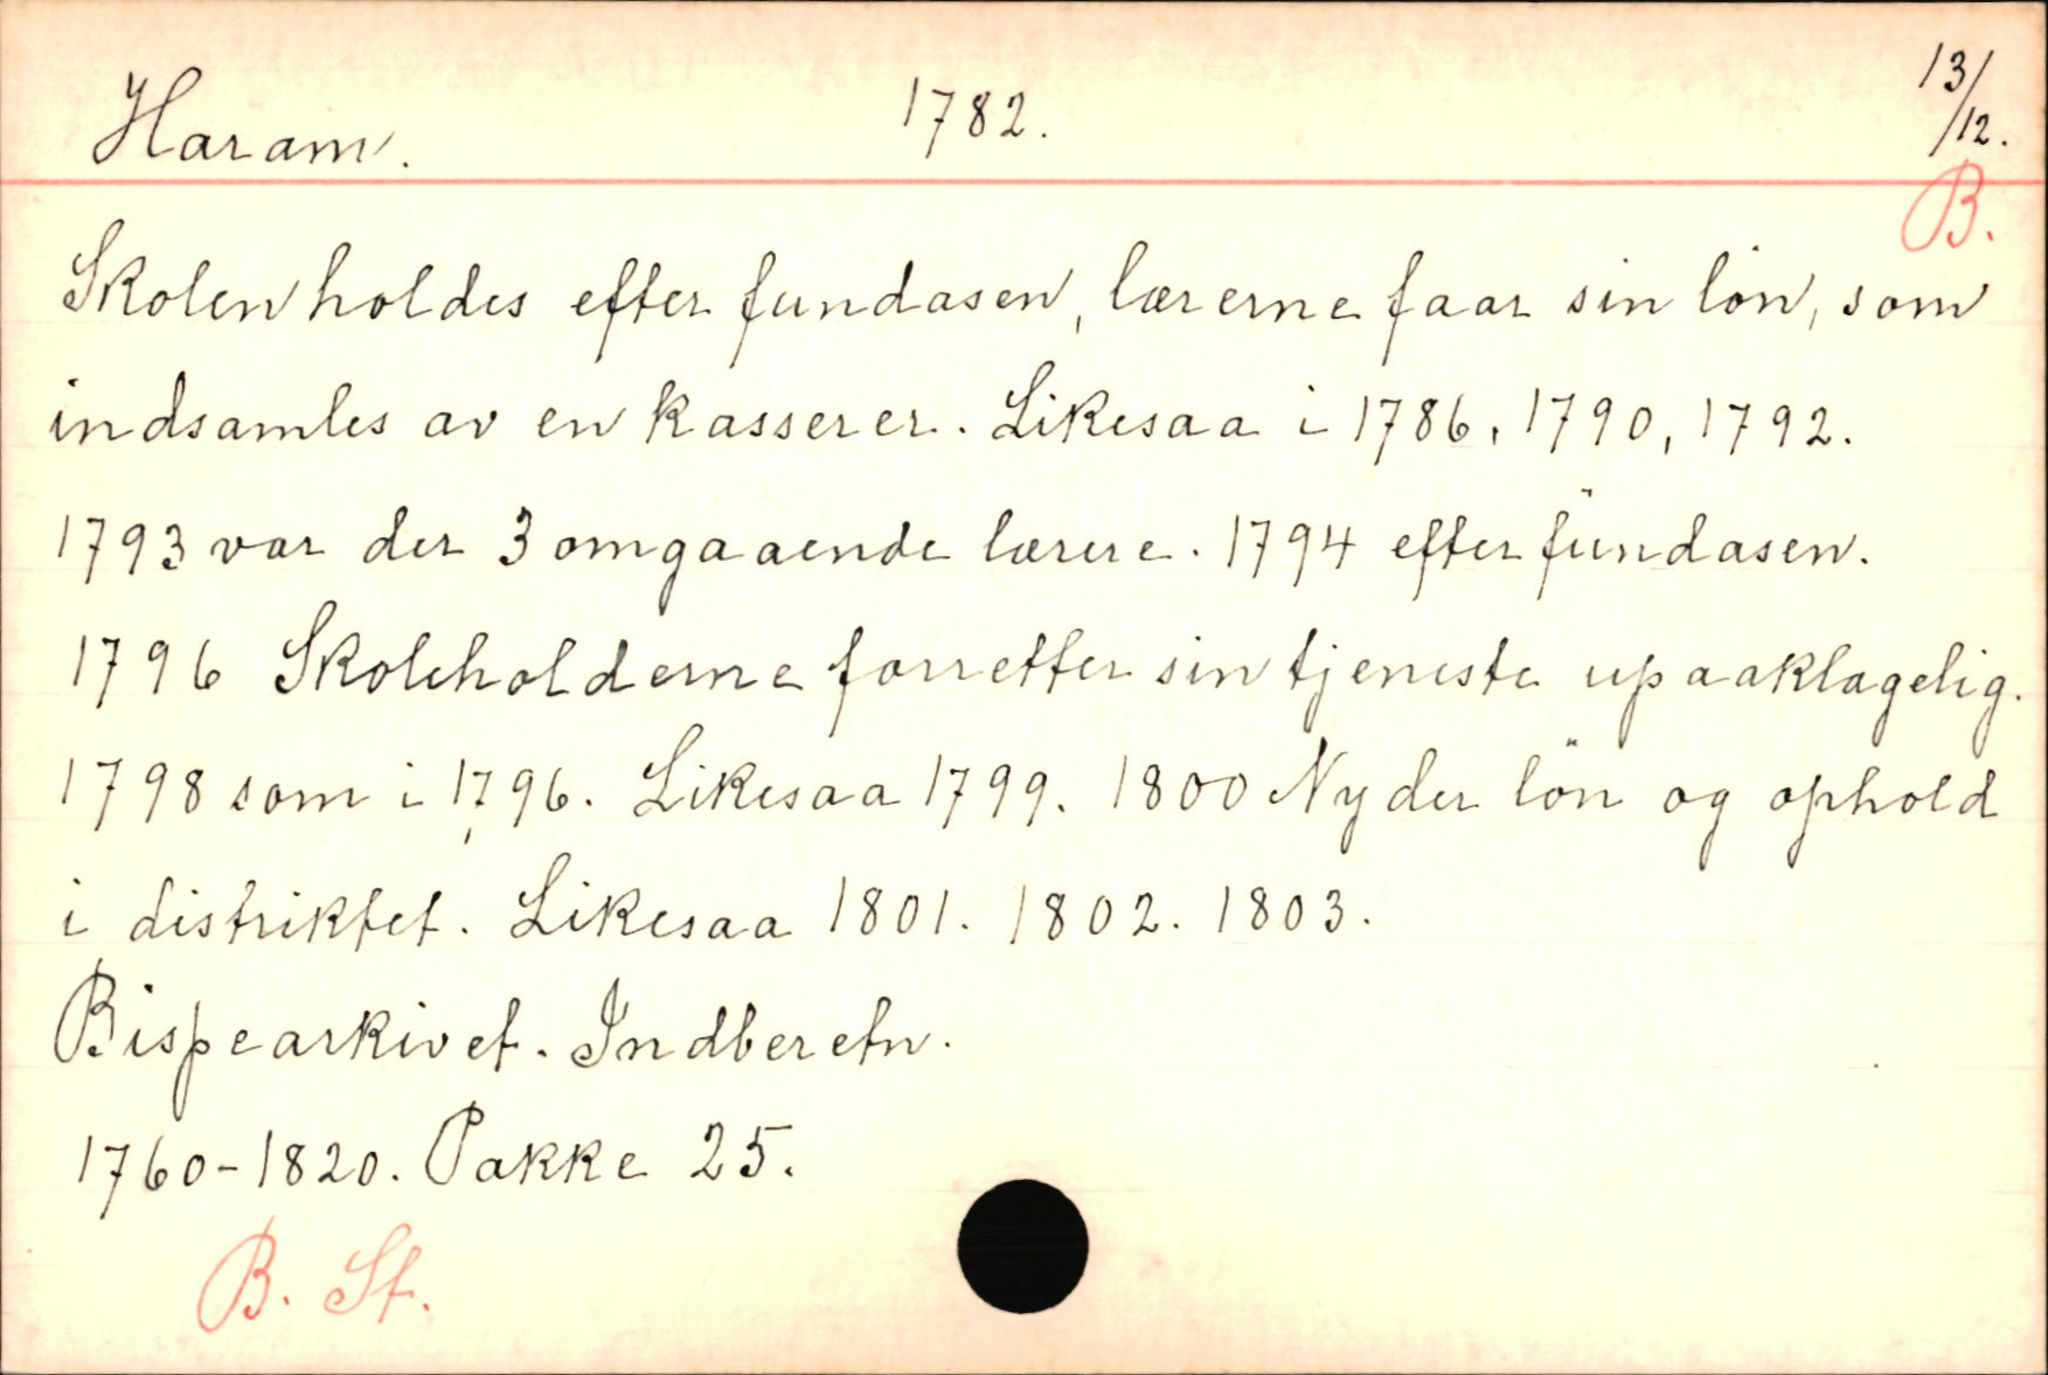 Haram. 1782. 13/12.
B.
Skolen holdes efter fundasen, lærerne faar sin lön, som
indsamles av en kasserer. Likesaa i 1786, 1790, 1792.
1793 var der 3 omgaaende lærere. 1794 efter fundasen.
1796 Skoleholderne forretter sin tjeneste upaaklagelig.
1798 som i 1796. Likesaa 1799. 1800 Nyder lön og ophold
i distriktet. Likesaa 1801. 1802. 1803.
Bispearkivet. Indberetn.
1760-1820. Pakke 25.
B. St.